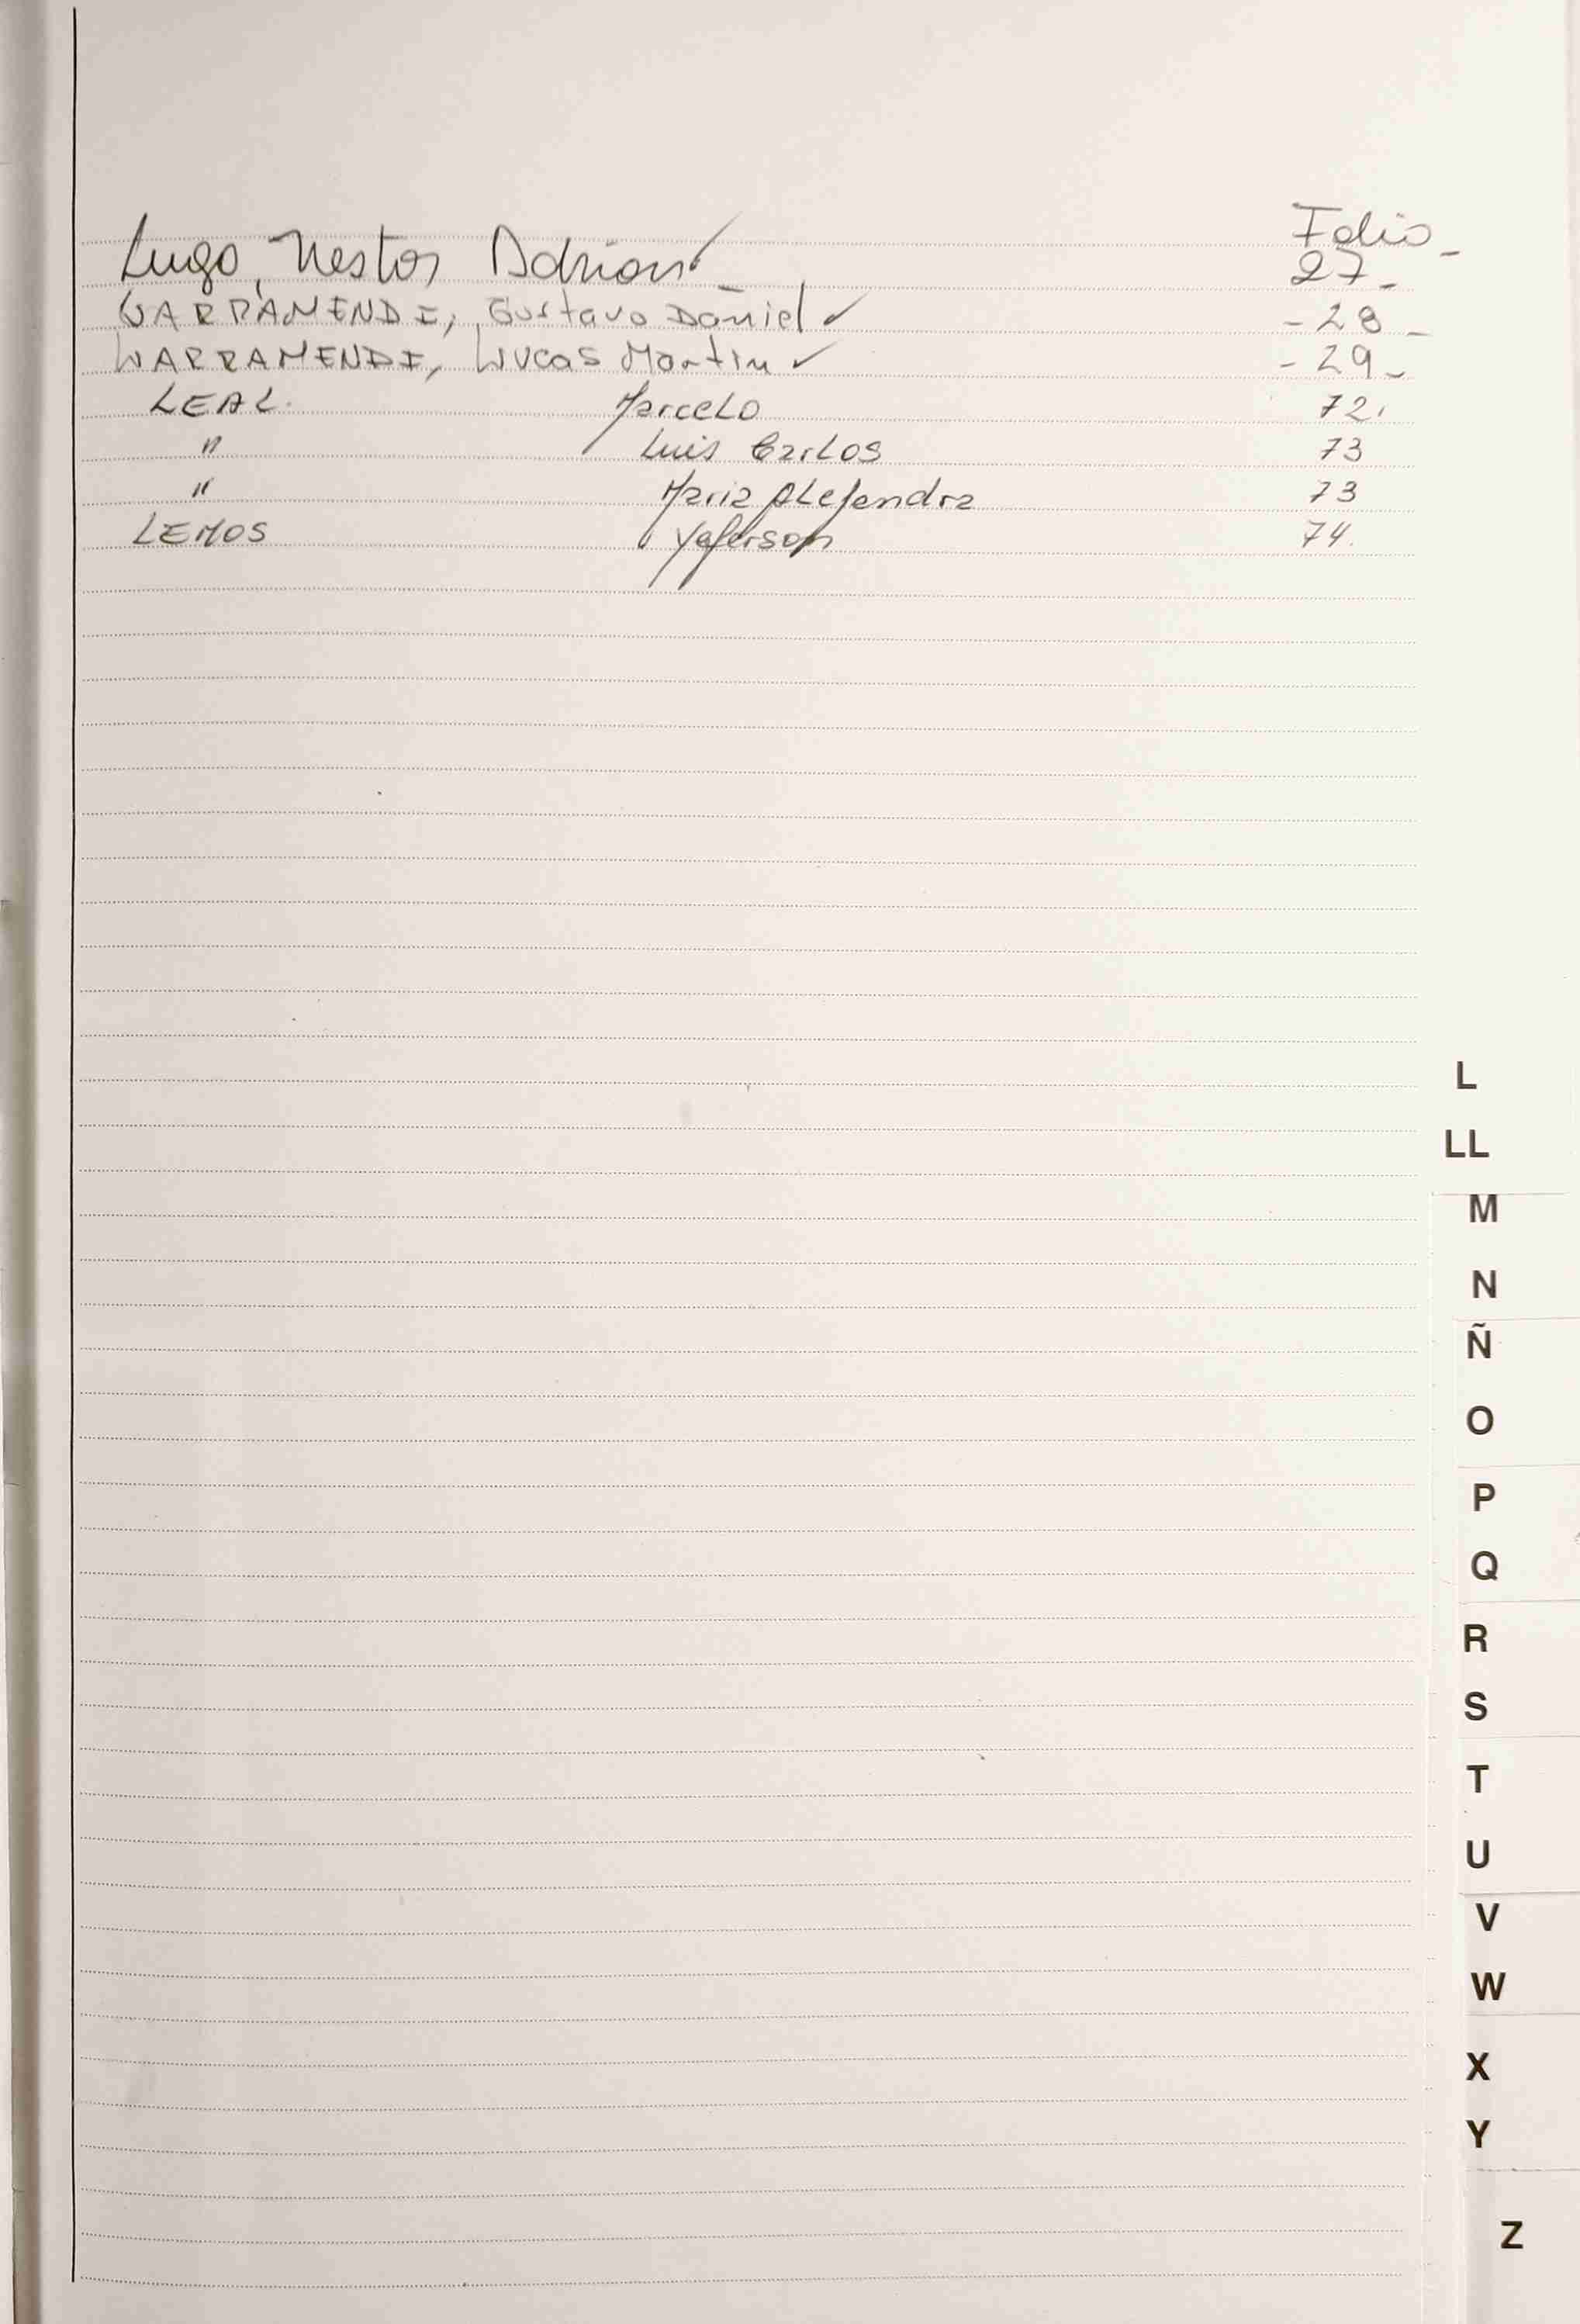 Folio
Lugo, Nestor Adrian ✓ 27
LARRAMENDI, Gustavo Daniel ✓ - 28 -
LARRAMENDI, Lucas Martin ✓ - 29 -
LEAL. Marcelo 72.
" Luis Carlos 73
" Maria Alejandra 73
LEMOS Yeferson 74.
L
LL
M
N
Ñ
O
P
Q
R
S
T
U
V
W
X
Y
Z